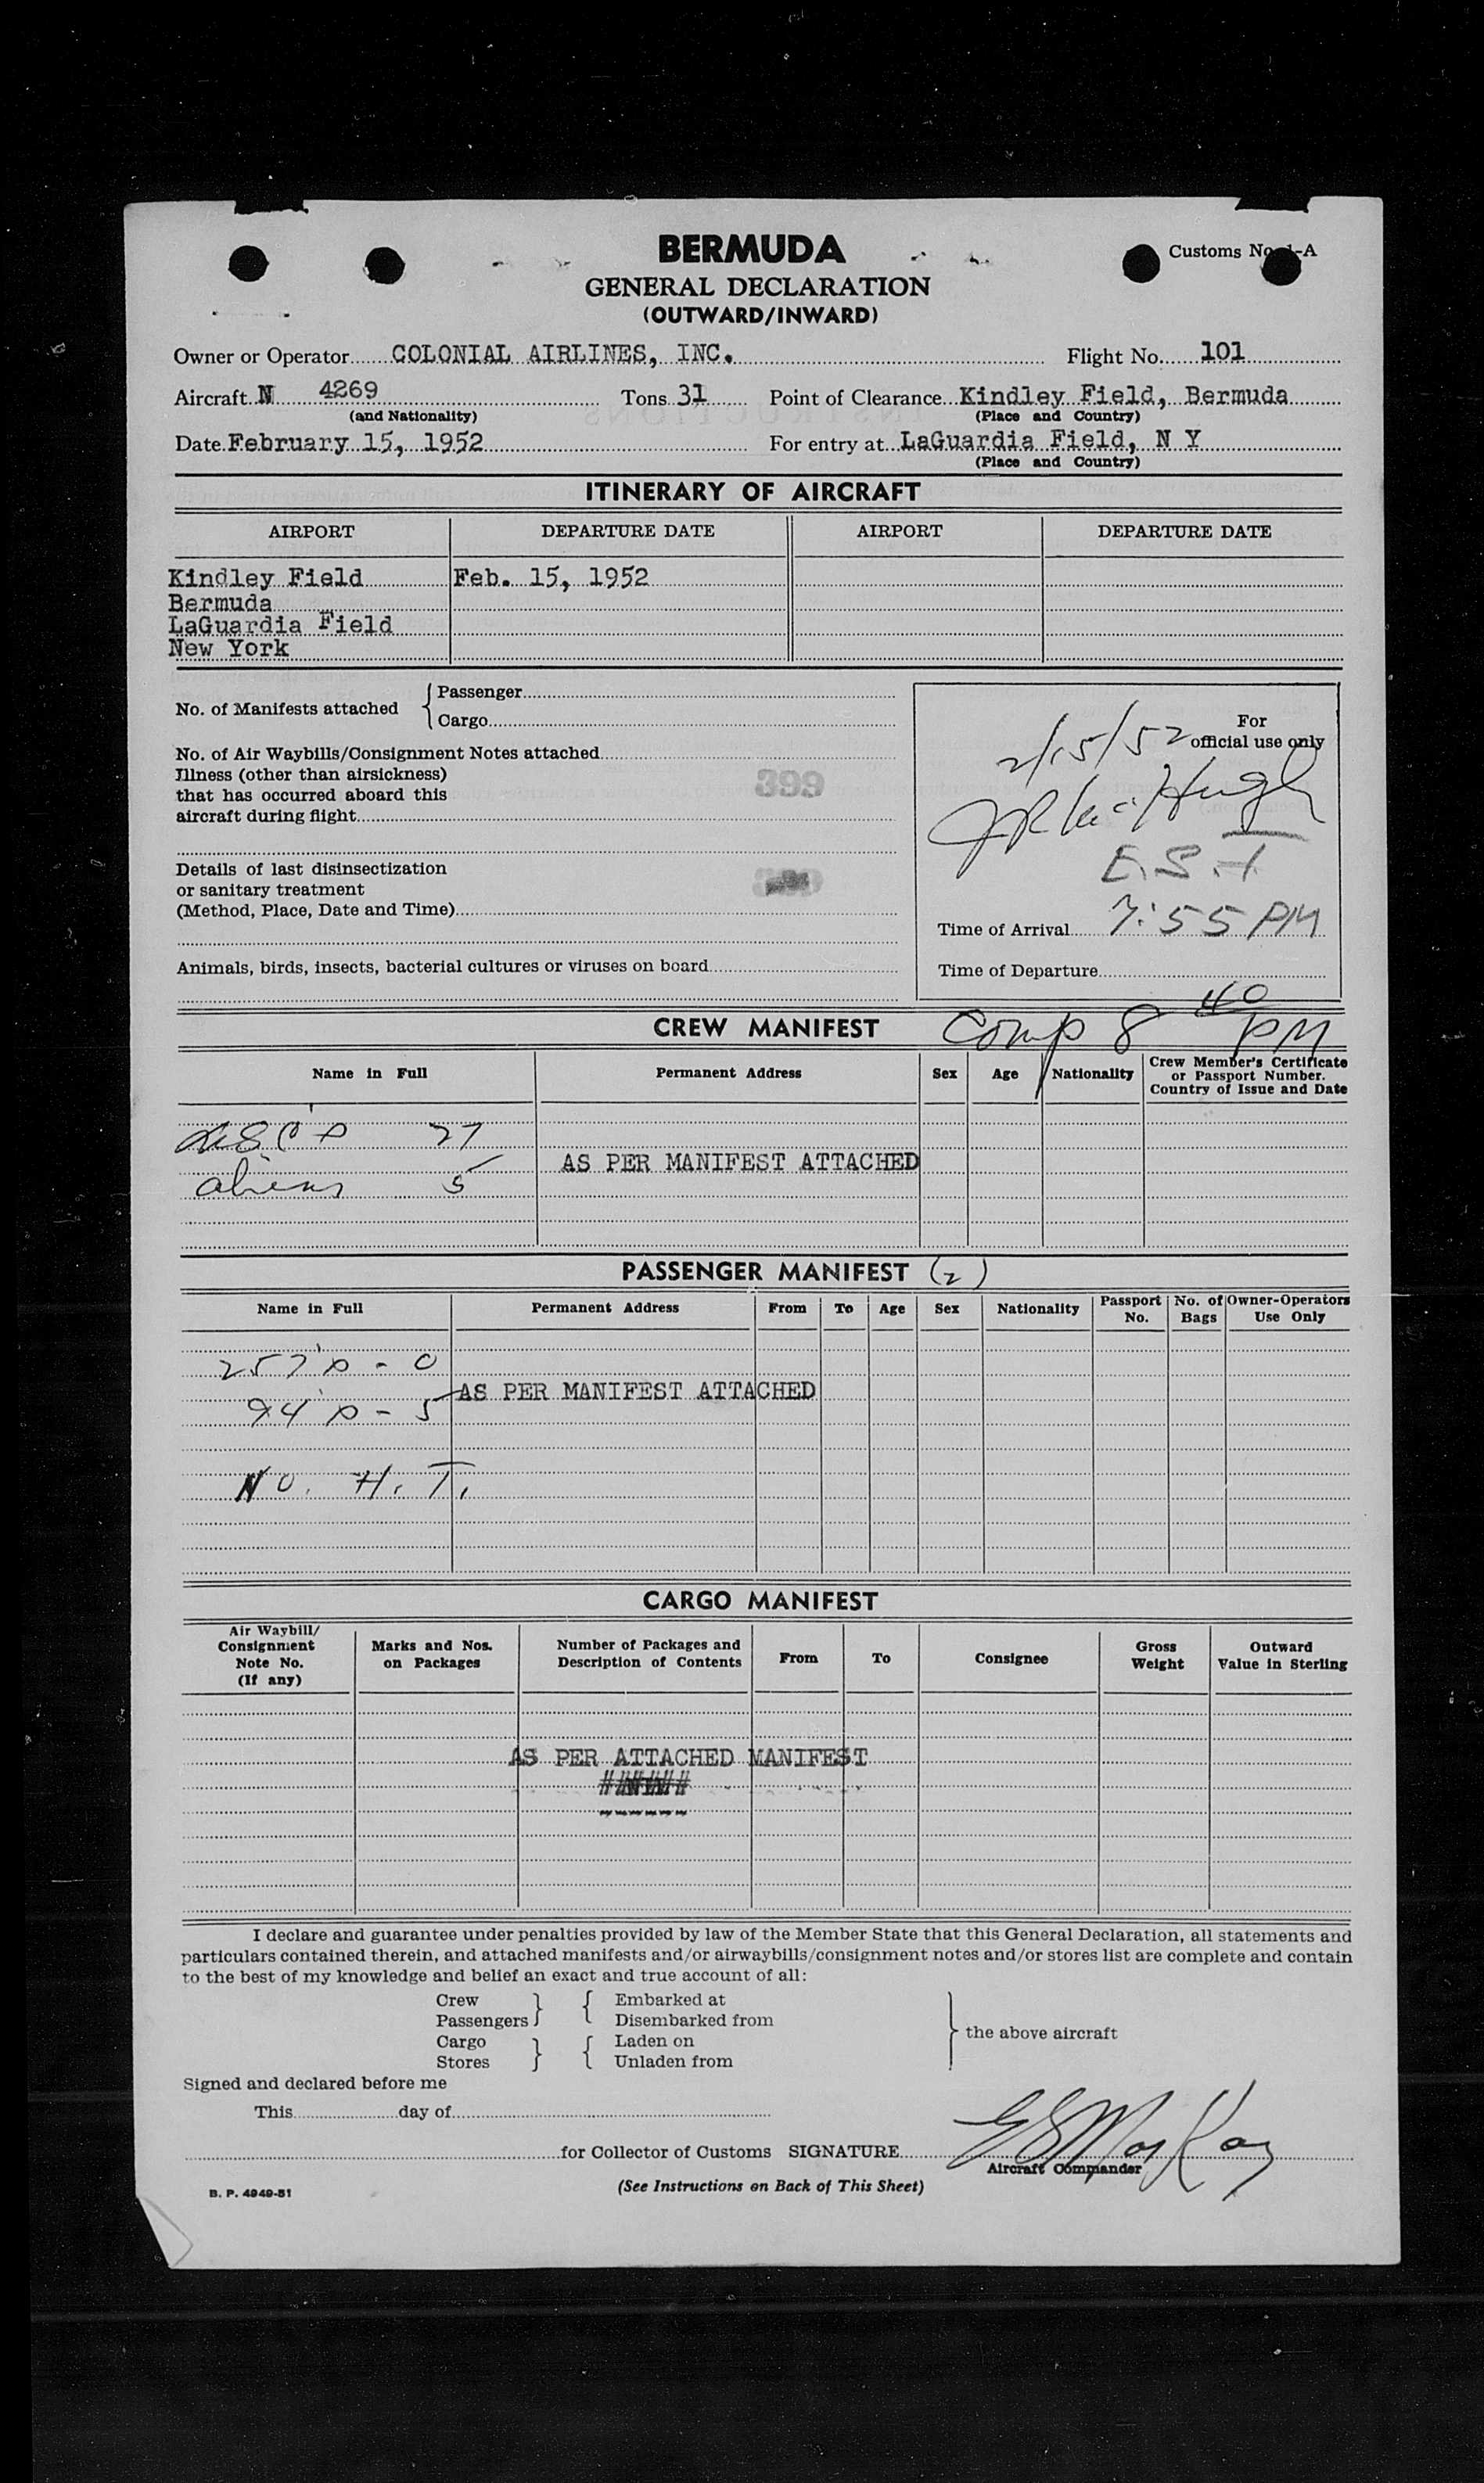 BERMUDA
Customs No. 1-A
GENERAL DECLARATION
(OUTWARD/INWARD)
Owner or Operator COLONIAL AIRLINES, INC. Flight No. 101
Aircraft N 4269 Tons 31 Point of Clearance Kindley Field, Bermuda
(and Nationality) (Place and Country)
Date February 15, 1952 For entry at LaGuardia Field, N Y
(Place and Country)
ITINERARY OF AIRCRAFT
AIRPORT DEPARTURE DATE AIRPORT DEPARTURE DATE
Kindley Field Feb. 15, 1952
Bermuda
LaGuardia Field
New York
No. of Manifests attached { Passenger
Cargo
No. of Air Waybills/Consignment Notes attached
Illness (other than airsickness)
that has occurred aboard this
aircraft during flight
399
Details of last disinsectization
or sanitary treatment
(Method, Place, Date and Time)
Animals, birds, insects, bacterial cultures or viruses on board
For
official use only
2/15/52
E.S.T
Time of Arrival 7:55 PM
Time of Departure
CREW MANIFEST Comp 8 40 PM
Name in Full Permanent Address Sex Age Nationality Crew Member's Certificate
or Passport Number.
Country of Issue and Date
27
AS PER MANIFEST ATTACHED
aliens 5
PASSENGER MANIFEST (2)
Name in Full Permanent Address From To Age Sex Nationality Passport No. No. of Bags Owner-Operators Use Only
257's - 0
AS PER MANIFEST ATTACHED
94's - 5
No. H. T.
CARGO MANIFEST
Air Waybill/
Consignment
Note No.
(If any)
Marks and Nos.
on Packages
Number of Packages and
Description of Contents
From To Consignee
Gross
Weight
Outward
Value in Sterling
AS PER ATTACHED MANIFEST
I declare and guarantee under penalties provided by law of the Member State that this General Declaration, all statements and
particulars contained therein, and attached manifests and/or airwaybills/consignment notes and/or stores list are complete and contain
to the best of my knowledge and belief an exact and true account of all:
Crew } { Embarked at
Passengers Disembarked from
Cargo } { Laden on
Stores Unladen from
} the above aircraft
Signed and declared before me
This day of
for Collector of Customs SIGNATURE
Aircraft Commander
(See Instructions on Back of This Sheet)
B. P. 4949-51